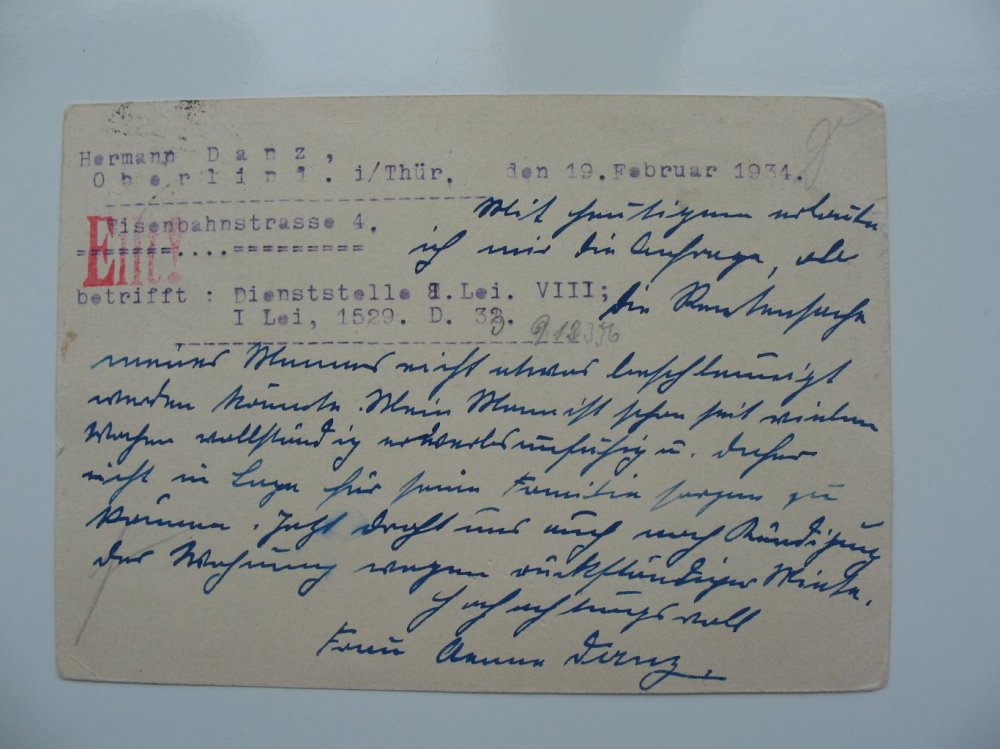 Hermann Danz,
Oberlind. i/Thür. den 19. Februar 1934.
Eisenbahnstrasse 4.
Eilt!
betrifft : Dienststelle I. Lei. VIII;
I Lei, 1529. D. 33.
Mit heutigem erlaube
ich mir die Anfrage, ob
die Rentensache
meines Mannes nicht etwas beschleunigt
werden könnte. Mein Mann ist schon seit vielen
Wochen vollständig erwerbsunfähig u. daher
nicht in Lage für seine Familie sorgen zu
können. Jetzt droht uns auch noch Kündigung
der Wohnung wegen rückständiger Miete.
Hochachtungsvoll
Frau Aenne Danz.